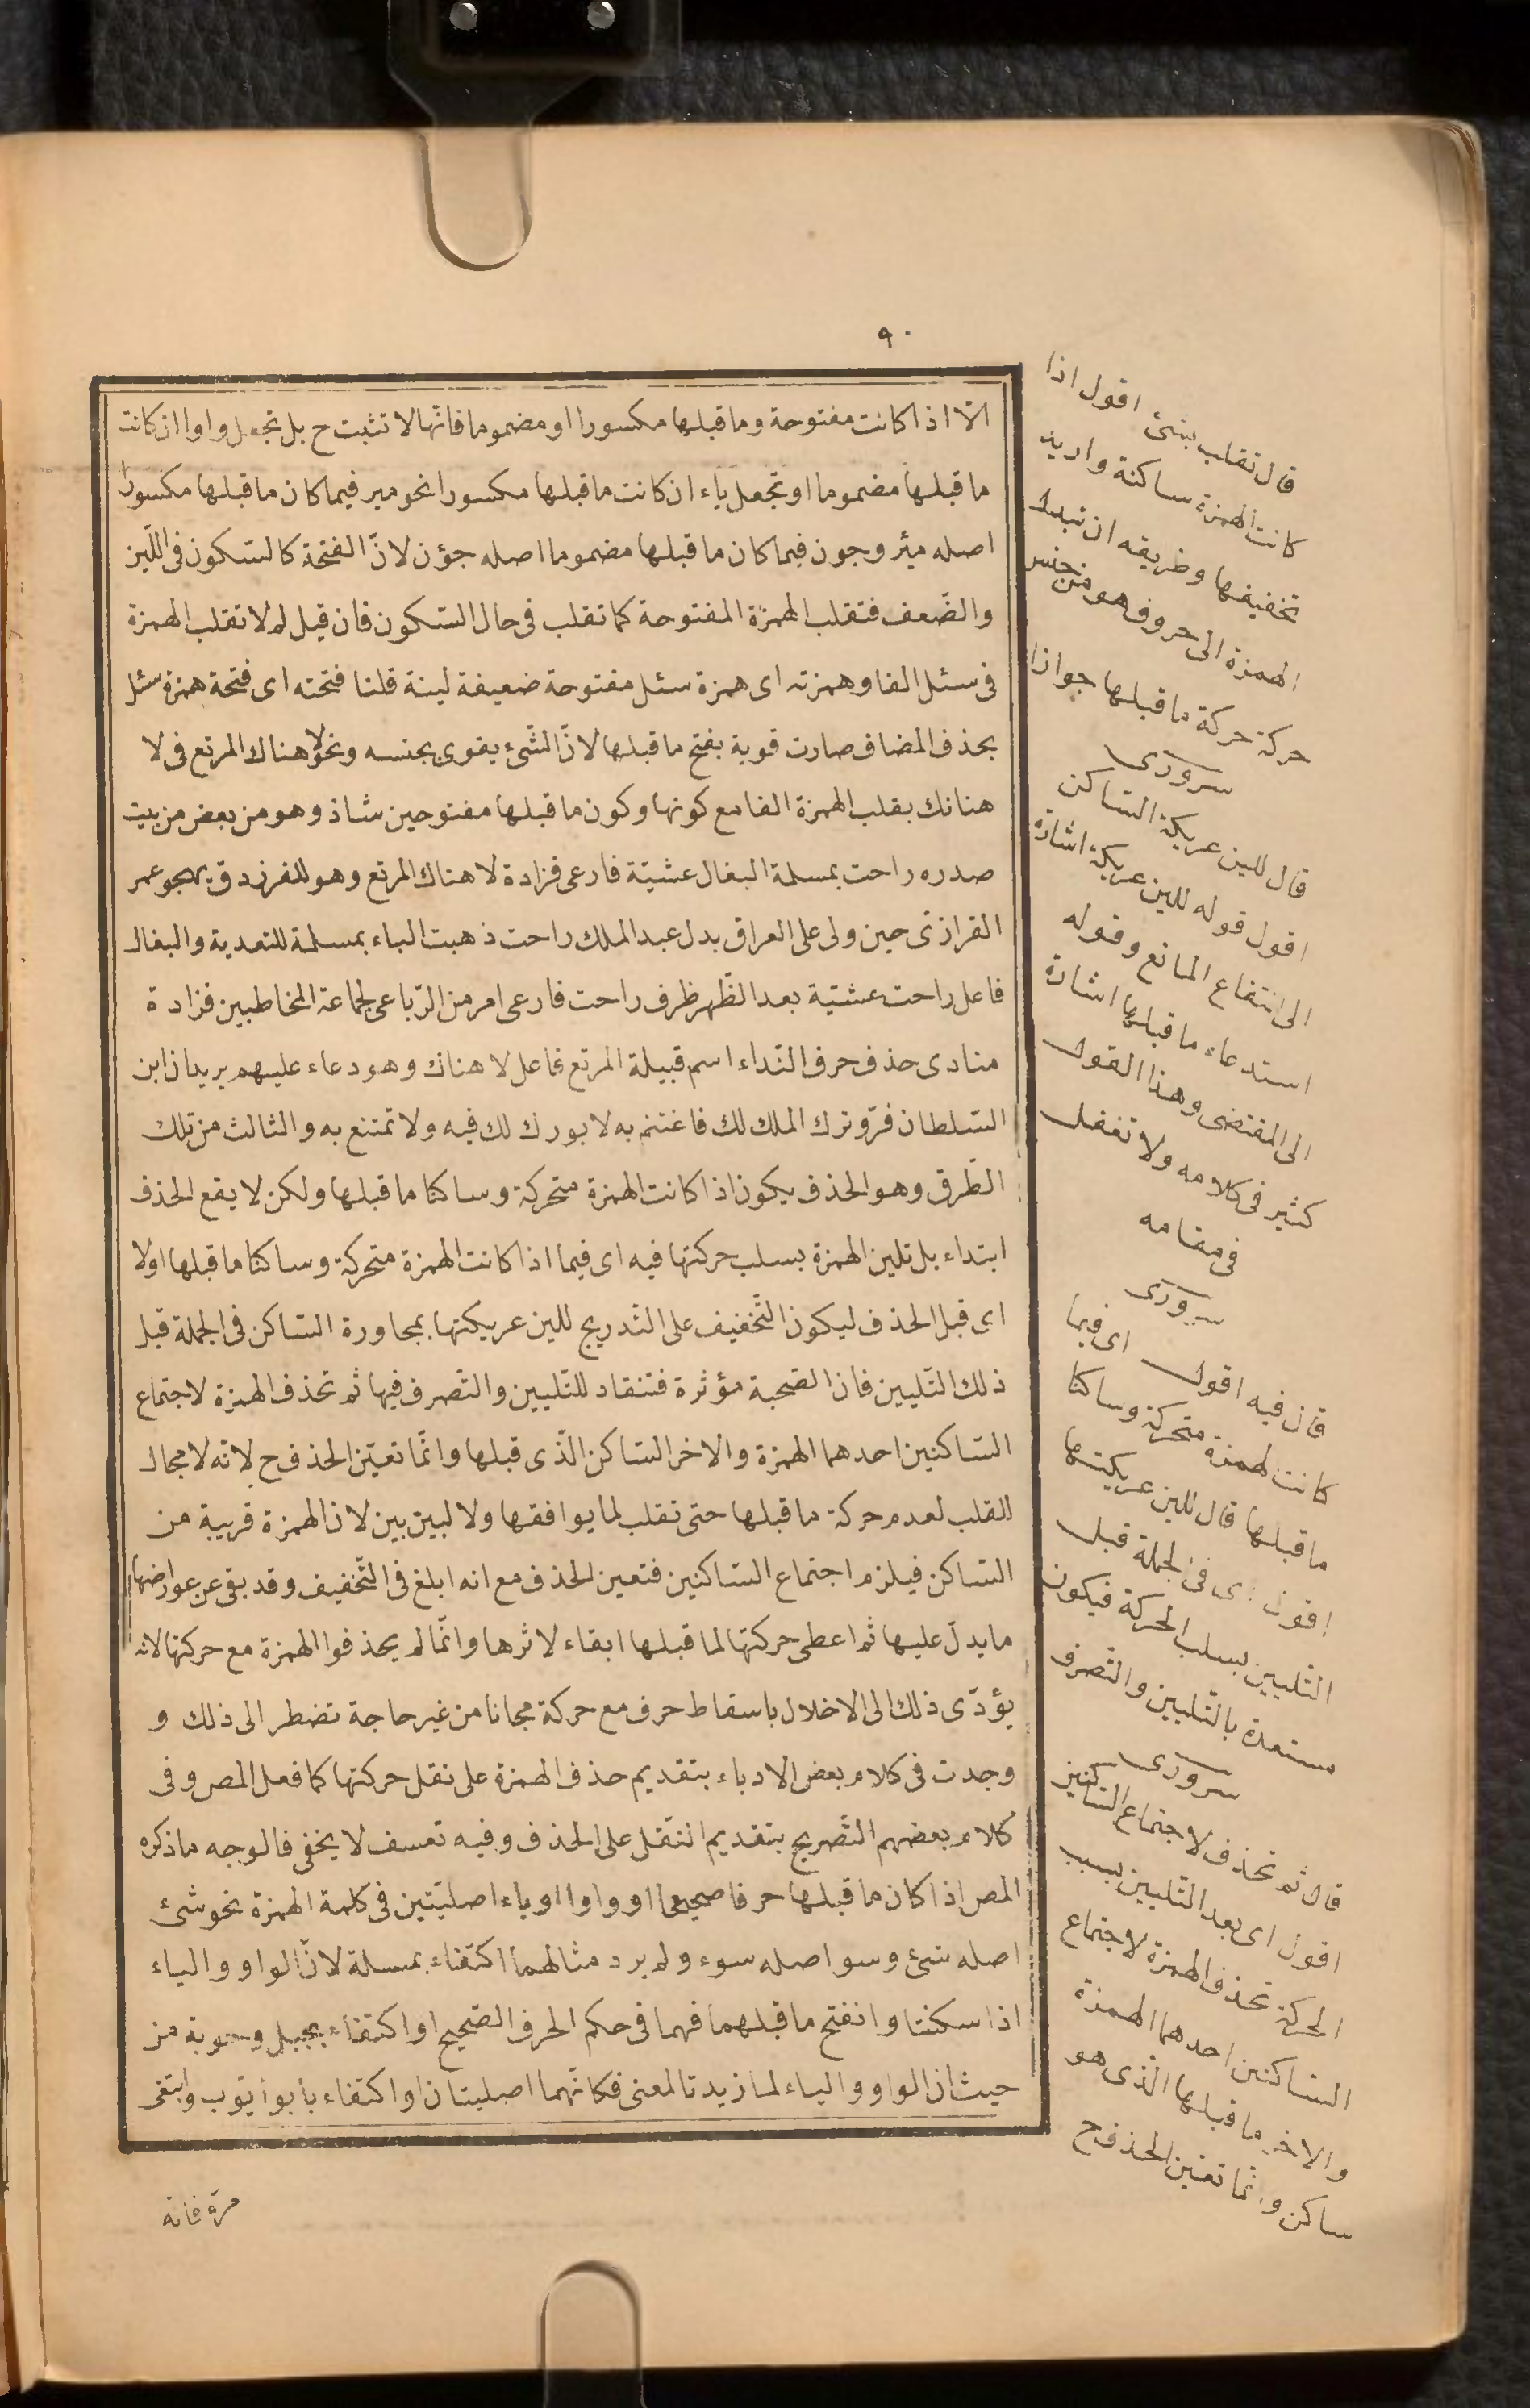 ٩٠
الّا اذا كانت مفتوحة وما قبلها مكسورا او مضموما فانّها لا تثبت ح بل تجعل واوا ان كانت
ما قبلها مضموما او تجعل ياء ان كانت ما قبلها مكسورا نحو مير فيما كان ما قبلها مكسورا
اصله مئر وجون فيما كان ما قبلها مضموما اصله جؤن لانّ الفتحة كالسّكون فى اللّين
والضّعف فتقلب الهمزة المفتوحة كما تقلب فى حال السّكون فان قيل لم لا تقلب الهمزة
فى سئل الفا وهمزته اى همزة سئل مفتوحة ضعيفة لينة قلنا فتحته اى فتحة همزة سئل
بحذف المضاف صارت قوية بفتح ما قبلها لانّ الشّئ يقوى بجنسه ونحو لا هناك المرتع فى لا
هنانك بقلب الهمزة الفا مع كونها وكون ما قبلها مفتوحين شاذ وهو من بعض من بيت
صدره راحت بمسلمة البغال عشيّة فارعى فزادة لا هناك المرتع وهو للفرزدق يهجو عمر
القزازى حين ولى على العراق بدل عبد الملك راحت ذهبت الباء بمسلمة للتعدية والبغال
فاعل راحت عشيّة بعد الظّهر ظرف راحت فارعى امر من الرّباعى لجماعة المخاطبين فزادة
منادى حذف حرف النّداء اسم قبيلة المرتع فاعل لا هناك وهو دعاء عليهم يريد ان ابن
السّلطان فرّ وترك الملك لك فاغتنم به لا بورك لك فيه ولا تمتنع به والثالث من تلك
الطّرق وهو الحذف يكون اذا كانت الهمزة متحركة وساكنا ما قبلها ولكن لا يقع الحذف
ابتداء بل تلين الهمزة بسلب حركتها فيه اى فيما اذا كانت الهمزة متحركة وساكنا ما قبلها اولا
اى قبل الحذف ليكون التّخفيف على التّدريج للين عريكتها بمجاورة السّاكن فى الجملة قبل
ذلك التّليين فان الصّحبة مؤثرة فتنقاد للتّليين والتّصرف فيها ثم تحذف الهمزة لاجتماع
السّاكنين احدهما الهمزة والاخر السّاكن الّذى قبلها وانّما تعيّن الحذف ح لانّه لا مجال
للقلب لعدم حركة ما قبلها حتى تقلب لما يوافقها ولا لبين بين لان الهمزة قريبة من
السّاكن فيلزم اجتماع السّاكنين فتعين الحذف مع انه ابلغ فى التّخفيف وقد بقى عن عوارضها
ما يدلّ عليها ثم اعطى حركتها لما قبلها ابقاء لاثرها وانّما لم يحذفوا الهمزة مع حركتها لانه
يؤدّى ذلك الى الاخلال باسقاط حرف مع حركة مجانا من غير حاجة تضطر الى ذلك و
وجدت فى كلام بعض الادباء بتقديم حذف الهمزة على نقل حركتها كما فعل المص وفى
كلام بعضهم التّصريح بتقديم النّقل على الحذف وفيه تعسف لا يخفى فالوجه ما ذكره
المص اذا كان ما قبلها حرفا صحيحا او واوا او ياء اصليّتين فى كلمة الهمزة نحو شئ
اصله شئ وسو اصله سوء ولم يرد مثالهما اكتفاء بمسلة لانّ الواو والياء
اذا سكنتا وانفتح ما قبلهما فهما فى حكم الحرف الصّحيح او اكتفاء بجيل وحوبة من
حيث ان الواو والياء لما زيدتا لمعنى فكانّهما اصليتان او اكتفاء بابو ايّوب وابتغى
مرة فانه
قال تقلب بشئ اقول اذا
كانت الهمزة ساكنة واريد
تخفيفها وطريقه ان تبدل
الهمزة الى حروف هو من جنس
حركة حركة ما قبلها جوازا
سرورى
قال للين عريكة السّاكن
اقول قوله للين عريكة اشارة
الى انتفاع المانع وقوله
استدعاء ما قبلها اشارة
الى المقتضى وهذا القول
كثير فى كلامه ولا تغفل
فى مقامه
سرورى
قال فيه اقول اى فيما
كانت همزة متحركة وساكنا
ما قبلها قال للين عريكتها
اقول اى فى الجملة قبل
التّليين بسلب الحركة فيكون
مستعدة بالتّليين والتّصرف
سرورى
قال ثم تحذف لاجتماع السّاكنين
اقول اى بعد التّليين بسبب
الحركة تحذف الهمزة لاجتماع
السّاكنين احدهما الهمزة
والاخر ما قبلها الّذى هو
ساكن وانّما تعيّن الحذف ح